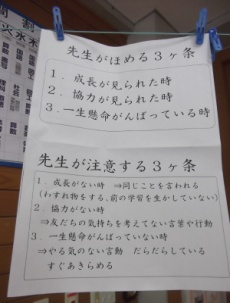 先生がほめる3ヶ条
1．成長が見られた時
2．協力が見られた時
3．一生懸命がんばっている時
先生が注意する3ヶ条
1．成長がない時　⇒同じことを言われる
（わすれ物をする、前の学習を生かしていない）
2．協力がない時
⇒友だちの気持ちを考えてない言葉や行動
3．一生懸命がんばっていない時
⇒やる気のない言動　だらだらしている
すぐあきらめる
火水木